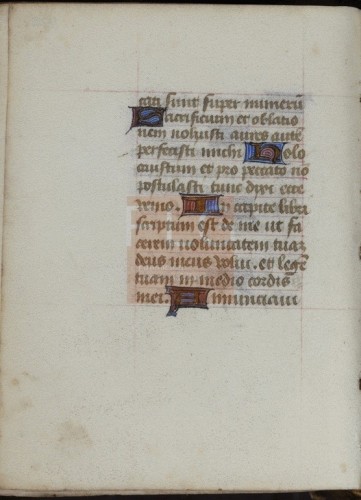 cati sunt super numerū
Sacrificium et oblatio
nem noluisti aures autē
perfecisti michi Holo
caustum et pro peccato no
postulasti tunc dixi ecce
venio. In capite libri
scriptum est de me ut fa
cerem voluntatem tuaȝ
deus meus volui. et legē
tuam in medio cordis
mei. Annunciaui